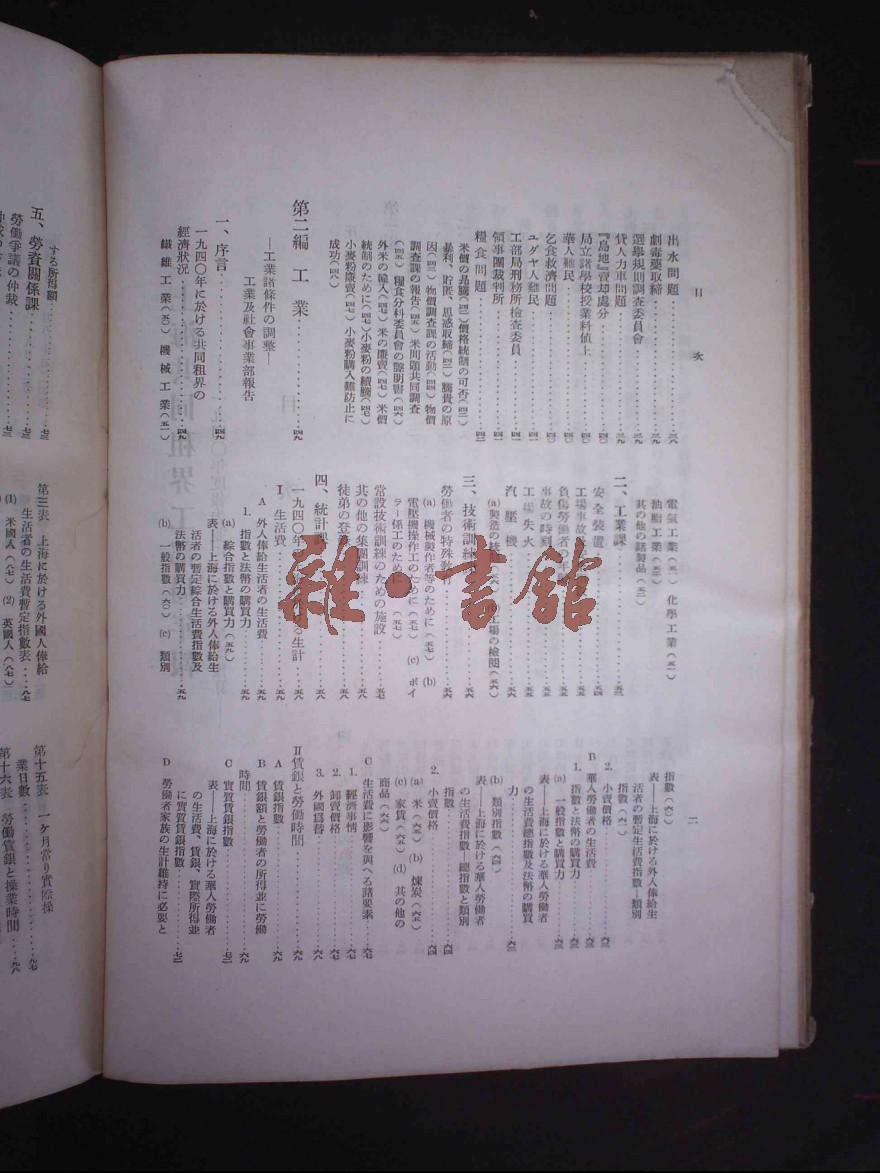 目次
出水問題……三八
劇毒憂取締……三八
選舉規則調査委員會……三八
貸人力車問題……三九
『島地』賣却處分……四〇
局立諸學校授業料値上……四〇
華人難民……四〇
乞食救濟問題……四〇
ユダヤ人難民……四一
工部局刑務所檢査委員……四一
領事團裁判所……四一
糧食問題……四二
米價の昂騰(四二)價格統制の可否(四二)
暴利、貯匿、思惑取締(四三)騰貴の原
因(四三)物價調査課の活動(四四)物價
調査課の報告(四五)米問題共同調査
(四五)糧食分科委員會の聲明書(四六)
外米の輸入(四六)米の廉賣(四七)米價
統制のために(四七)小麥粉の續騰(四七)
小麥粉廉賣(四七)小麥粉購入難防止に
成功(四八)
第二編 工業……四九
―工業諸條件の調整―
工業及社會事業部報告
一、序言……四九
一九四〇年に於ける共同租界の
經濟狀況……四九
纖維工業(五〇)機械工業(五一)
電氣工業(五一)化學工業(五一)
油脂工業(五二)
其の他の諸製品(五二)
二、工業課……五三
安全裝置……五四
工場事故
負傷勞働者の年
事故の時刻
工場失火
汽壓機……五六
(a)製造の技
工場の檢閱(五六)
三、技術訓練
勞働者の特殊敎……五六
(a) 機械製作者等のために(五七) (b)
電壓機操作工のために(五七) (c) ボイ
ラー係工のために(五七)
常設技術訓練のための施設……五七
其の他の集團訓練……五八
徒弟の登……五八
四、統計課……五八
一九四〇年 る生計……五八
I 生活費……五九
A 外人俸給生活者の生活費……五九
1. 指數と法幣の購買力……五九
(a) 綜合指數と購買力(五九)
表――上海に於ける外人俸給生
活者の暫定綜合生活費指數及
法幣の購買力……五九
(b) 一般指數(六〇) (c) 類別
指數(六〇)
表――上海に於ける外人俸給生
活者の暫定生活費指數―類別
指數(六一)
2. 小賣價格……六三
B 華人勞働者の生活費……六三
1. 指數と法幣の購買力……六三
(a) 一般指數と購買力……六三
表――上海に於ける華人勞働者
の生活費總指數及法幣の購買
力……六三
(b) 類別指數(六四)
表――上海に於ける華人勞働者
の生活費指數―總指數と類別
指數……六四
2. 小賣價格……六四
(a) 米(六五) (b) 煉炭(六五)
(c) 家賃(六五) (d) 其の他の
商品(六六)
C 生活費に影響を與へる諸要素……六七
1. 經濟事情……六七
2. 卸賣價格……六七
3. 外國爲替……六八
II 賃銀と勞働時間……六九
A 賃銀指數……六九
B 賃銀額と勞働者の所得並に勞働
時間……六九
C 實質賃銀指數……七二
表――上海に於ける華人勞働者
の生活費、賃銀、實際所得並
に實質賃銀指數……七二
D 勞働者家族の生計維持に必要と
二
する所得額……七三
五、勞資關係課……七三
勞働爭議の仲裁
第三表 上海に於ける外國人俸給
生活者の生活費暫定指數表……八七
(1) 米國人(八七) (2) 英國人(八七)
第十五表 一ケ月當り實際操
業日數……九七
第十六表 勞働賃銀と操業時間……九八
雜·書館